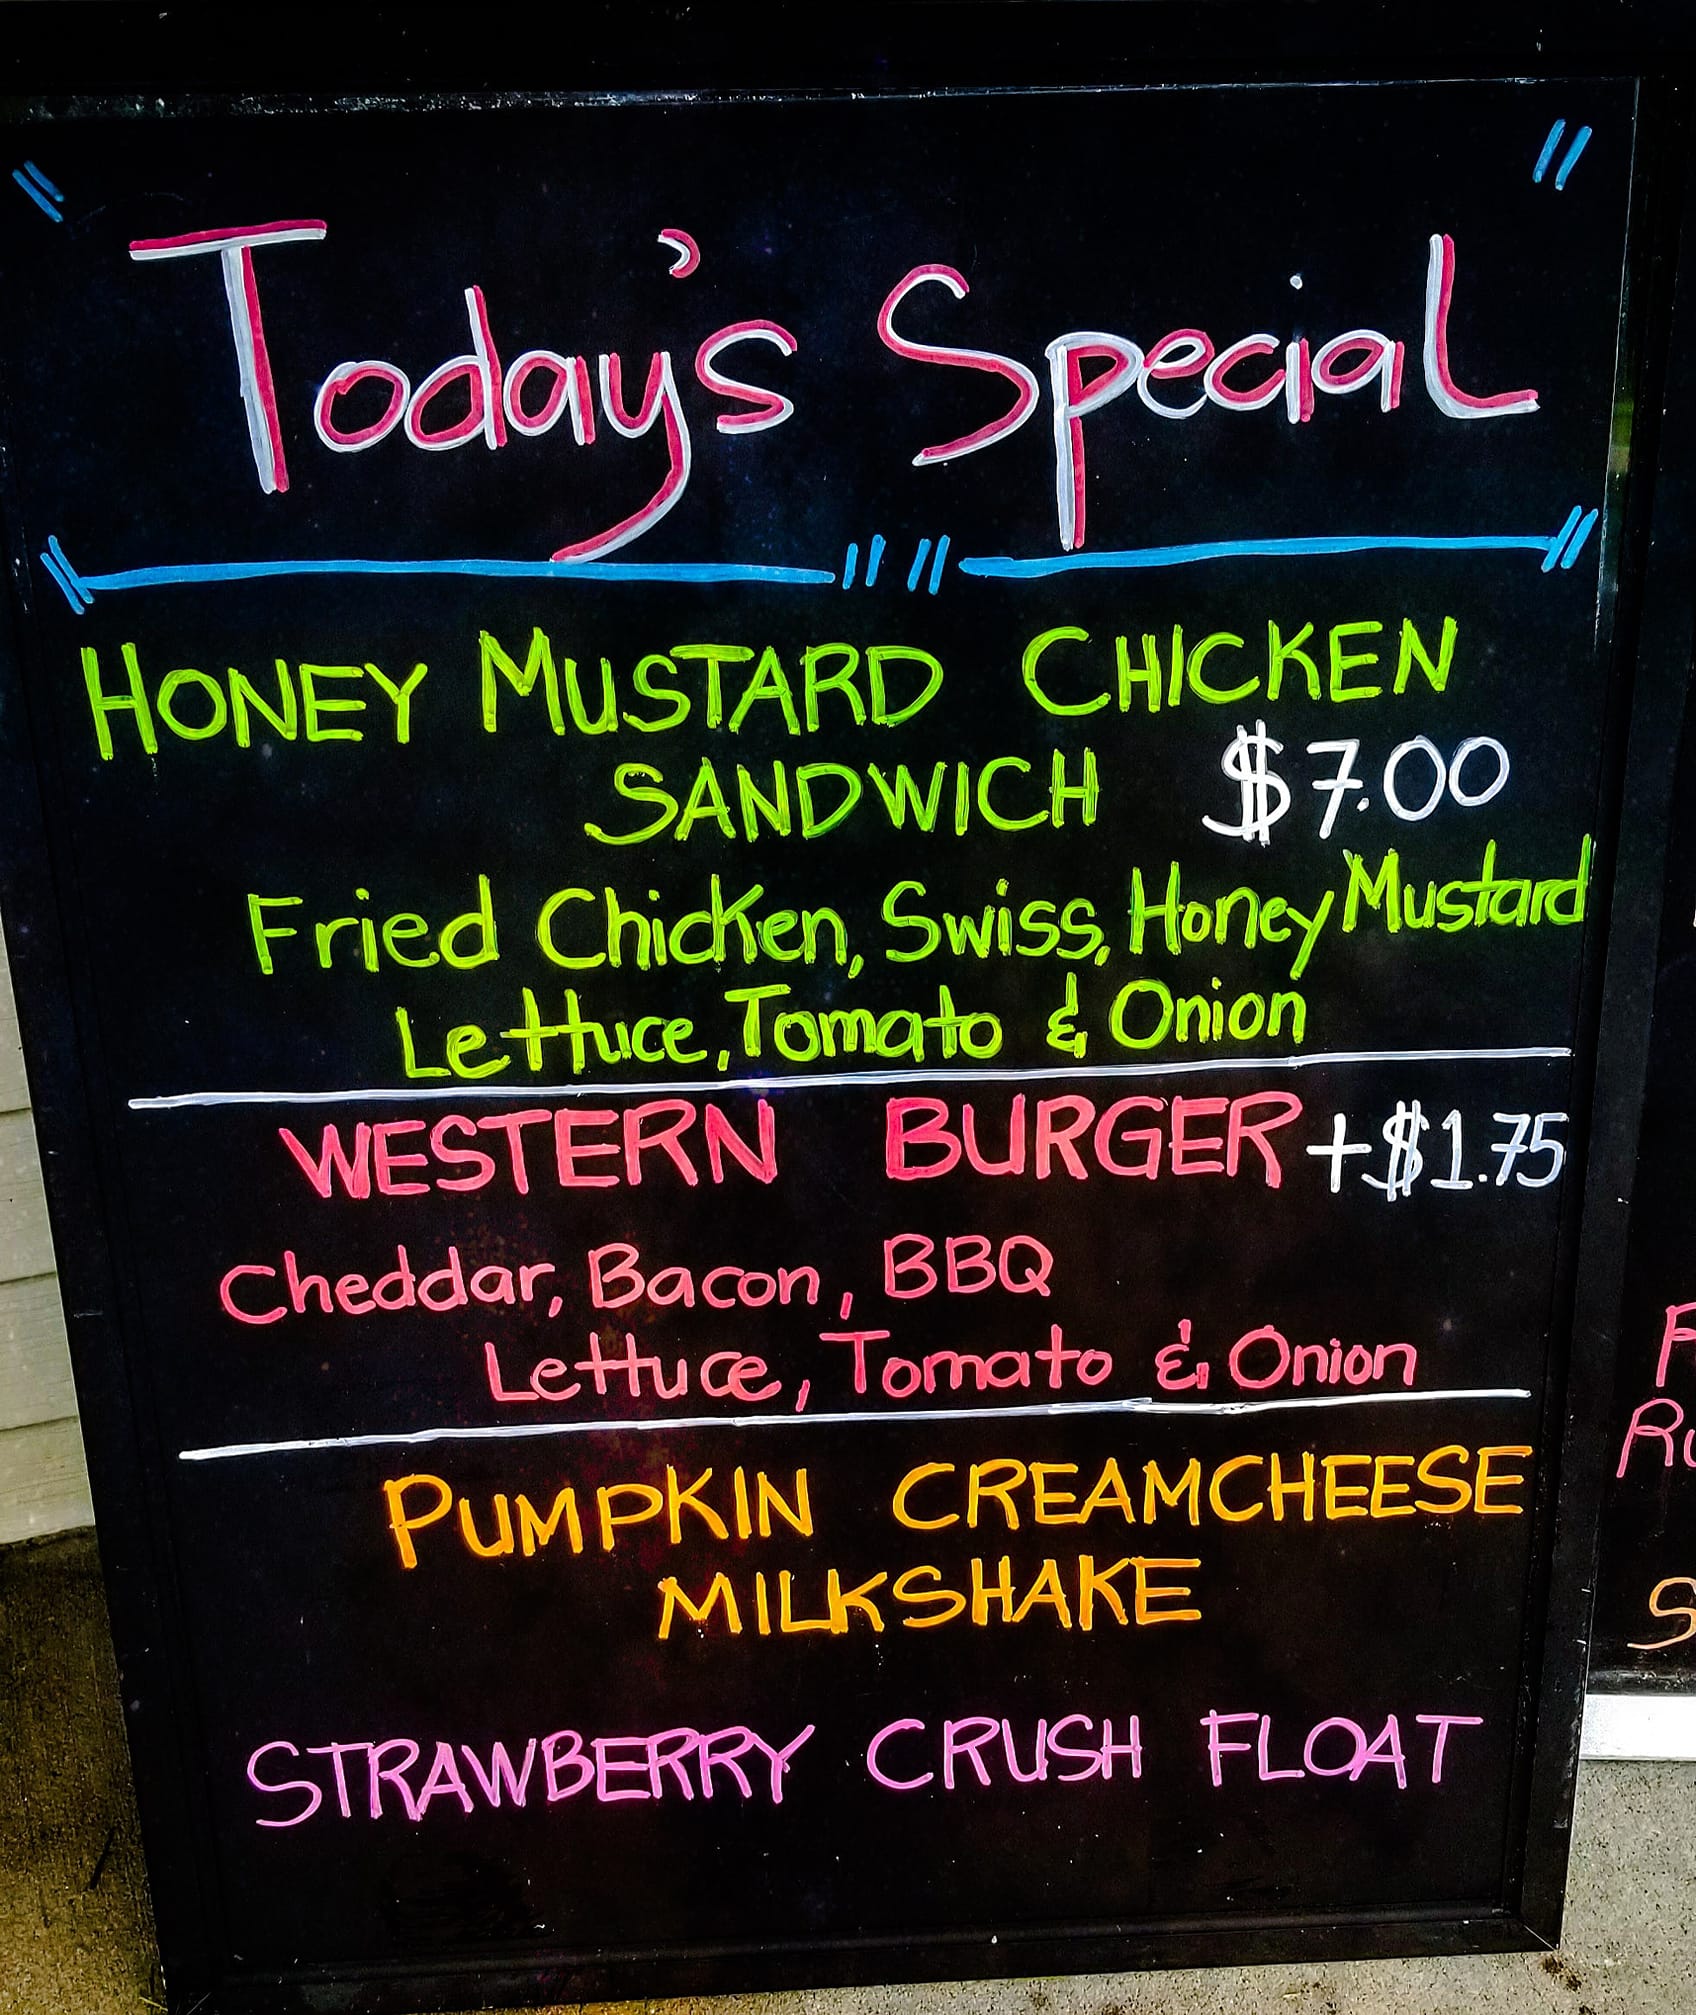 Today's Special
HONEY MUSTARD CHICKEN
SANDWICH $7.00
Fried Chicken, Swiss, Honey Mustard
Lettuce, Tomato & Onion
WESTERN BURGER +$1.75
Cheddar, Bacon, BBQ
Lettuce, Tomato & Onion
PUMPKIN CREAMCHEESE
MILKSHAKE
STRAWBERRY CRUSH FLOAT